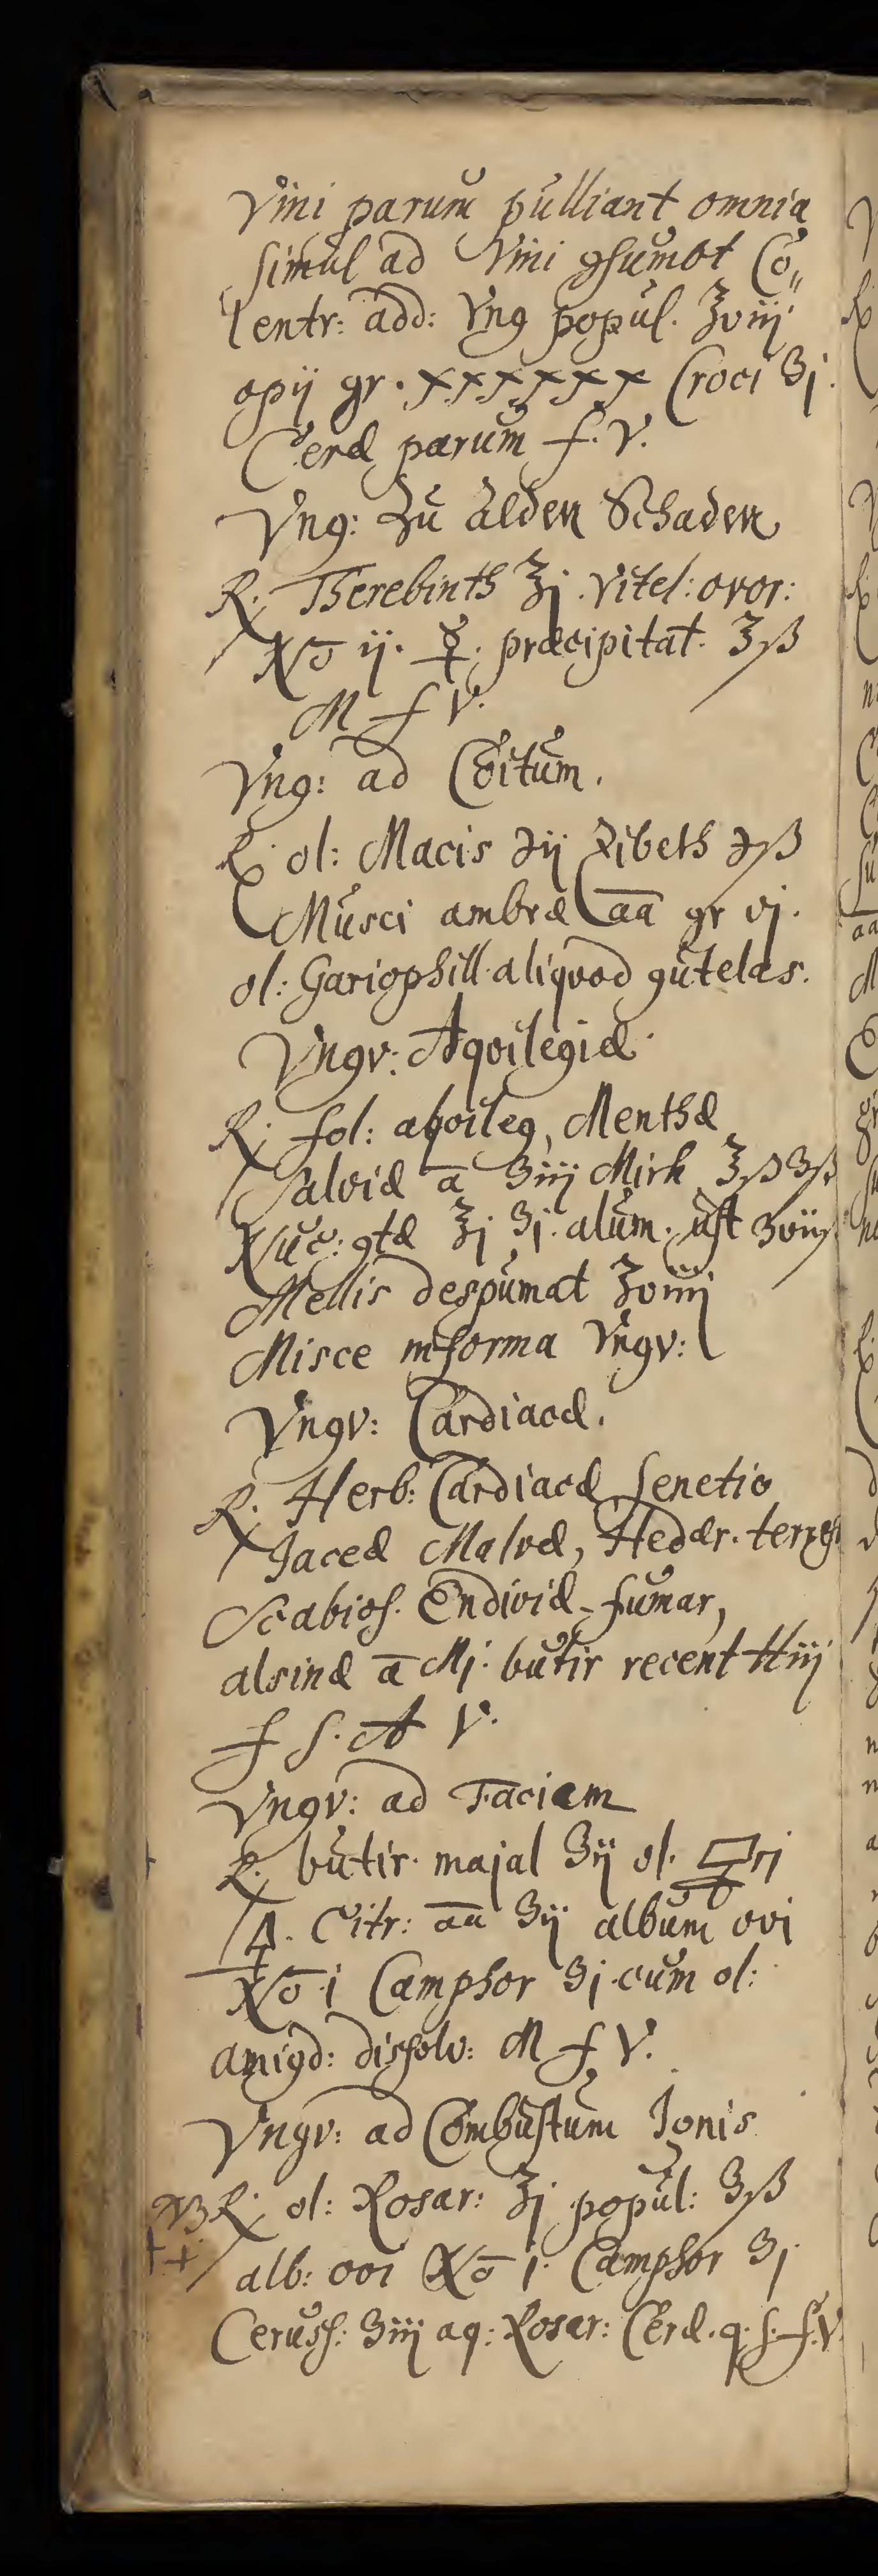 Vini parum pulliant omnia
simul ad Vini ꝯsumot Co„
lentr: add: Vng popul. ℥viij.
opij gr. xxxxxx Croci ʒj.
Ceræ parum f. V.
Vng: Zu alden Schaden
R. Therebinth ℥j. Vitel: ovor:
No ij. ☿. præcipitat. ℥ß
M f V.
Vng: ad Coitum.
R. ol: Macis ℈ij Zibeth ℈ß
Musci ambræ aa gr vj.
ol: Gariophill. aliqvod gutelas.
Vngv: Aqvilegiæ.
R. fol: aqvileg, Menthæ
Salviæ a ʒiij Mirh ℥ß ʒß
Nuc: ꝯtæ ℥j ʒj. alum. ust ʒviiß
Mellis despumat ℥viiij
Misce in forma Vngv:
Vngv: Cardiacæ.
R. Herb: Cardiacæ Senetio
Jaceæ Malvæ, Heder. terrest
Scabios. Endiviæ, fumar,
alsinæ a Mj. butir recent ℔iij
f S. A V.
Vngv: ad Faciem
R. butir. majal ʒij ol.
Citr: aa ʒij album ovi
No i Camphor ʒj cum ol:
amigd: dissolv: M f V.
Vngv: ad Combustum Ignis
NB R. ol: Rosar: ℥j popul: ʒß
alb: ovi No j. Camphor ʒj
Ceruss: ʒiij aq: Rosar: Ceræ. q. s. f. V